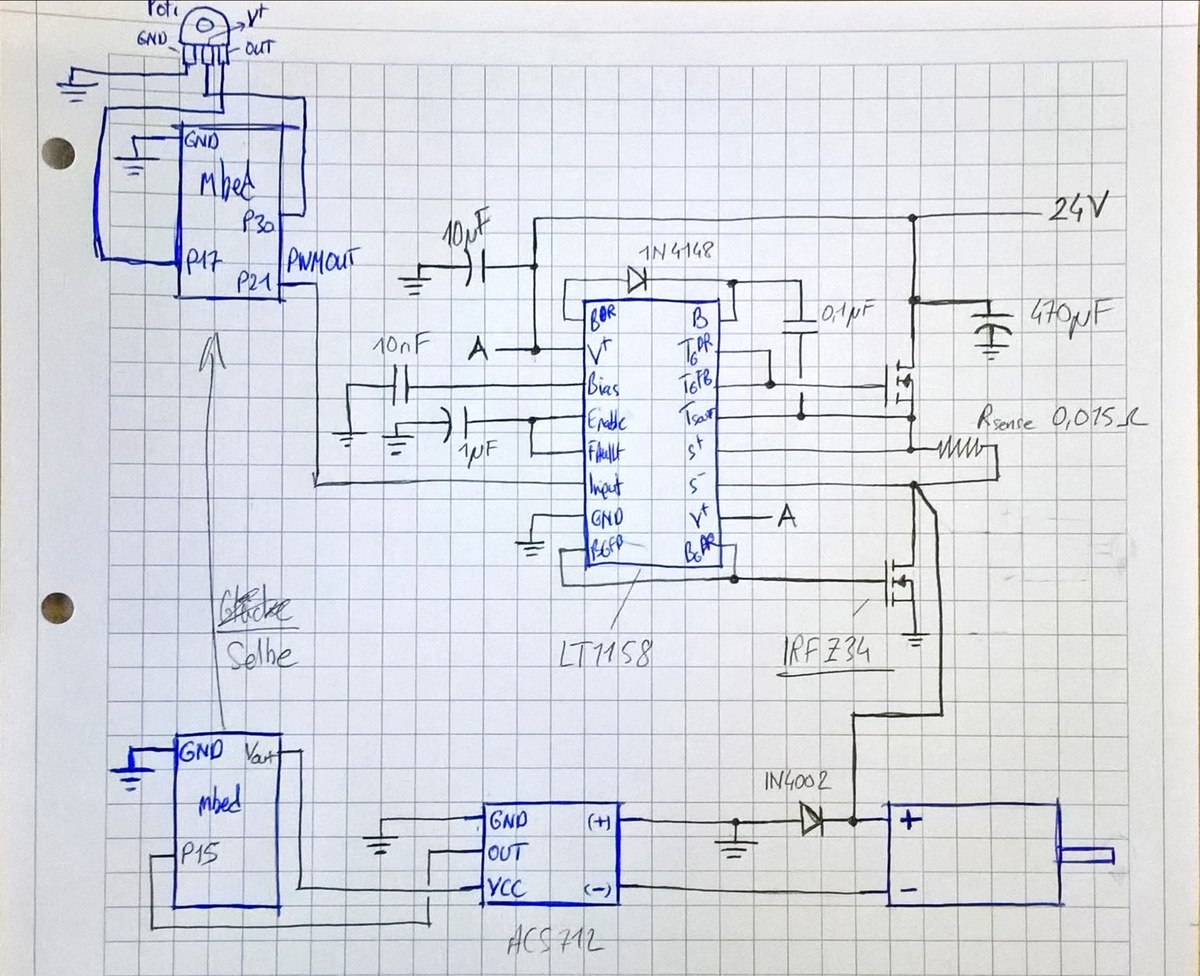 Poti
V+
GND
OUT
GND
Mbed
P30
P17
P21
PWMOUT
10µF
24V
1N4148
470µF
0,1µF
10nF
A
1µF
BDR
V+
Bias
Enable
Fault
Input
GND
BGFB
B
TGDR
TGFB
Tsour
S+
S-
V+
BGDR
A
Rsense 0,015Ω
LT1158
IRFZ34
Selbe
GND
Vout
mbed
P15
GND
OUT
VCC
(+)
(-)
ACS712
1N4002
+
-